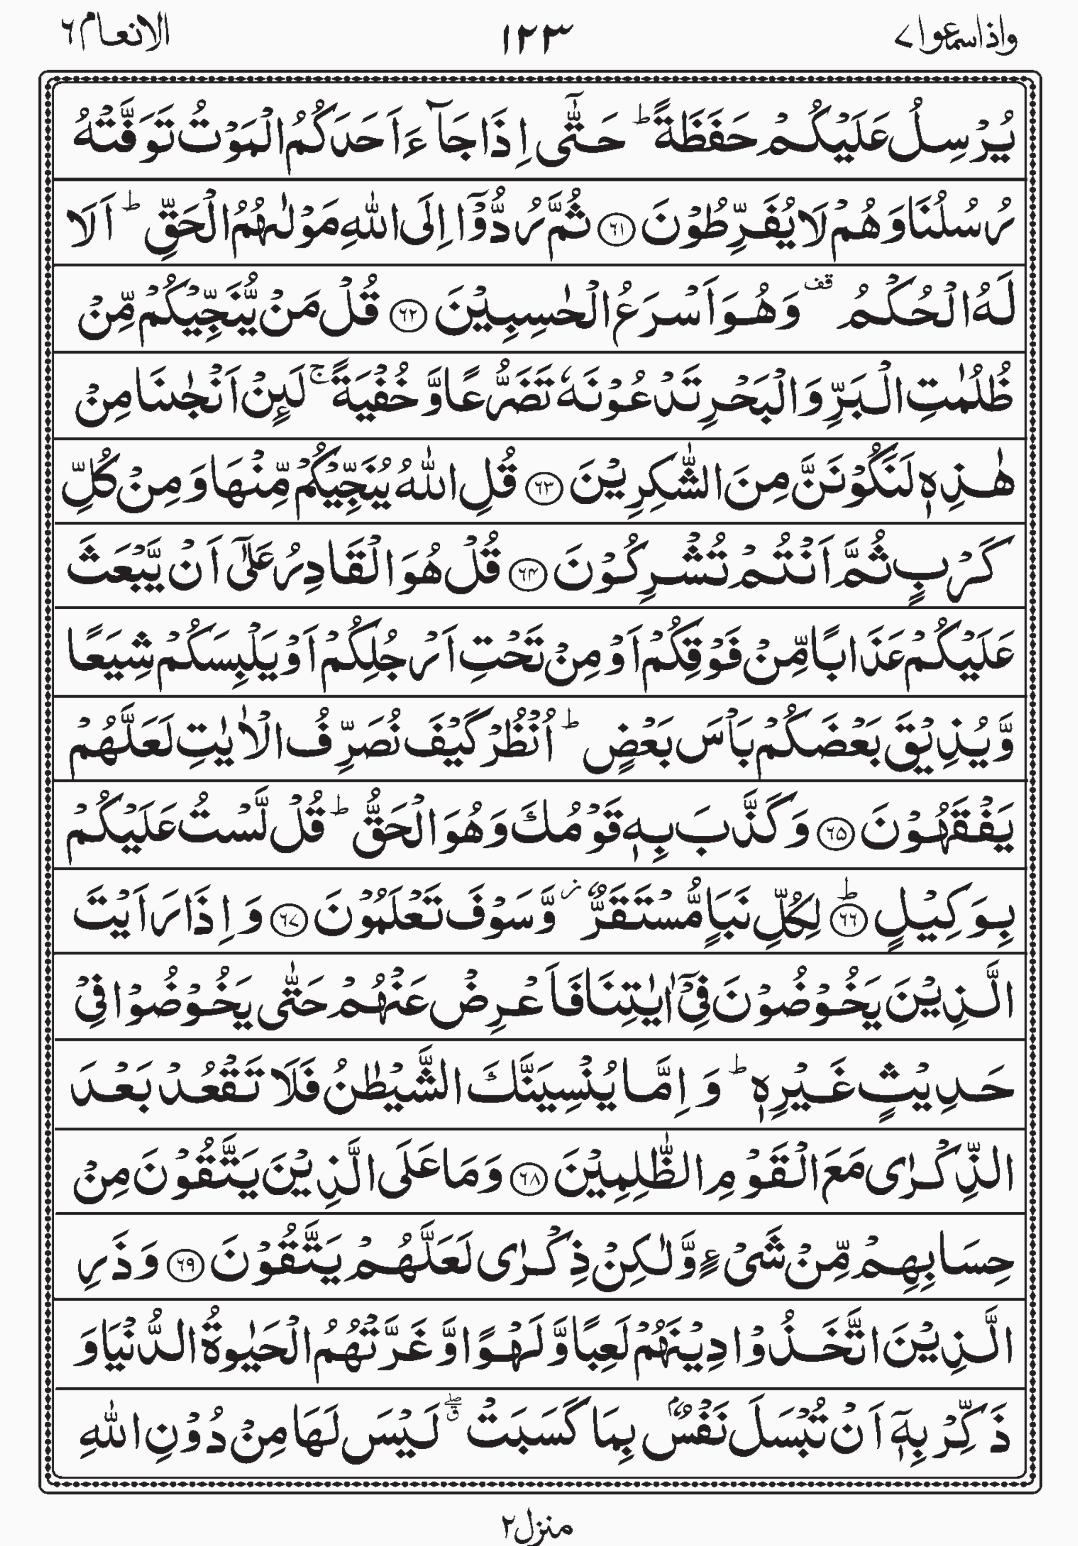 واذاسمعوا ٧ ١٢٣ الانعام ٦
يُرْسِلُ عَلَيْكُمْ حَفَظَةً ؕ حَتّٰۤى اِذَا جَآءَ اَحَدَكُمُ الْمَوْتُ تَوَفَّتْهُ
رُسُلُنَا وَهُمْ لَا يُفَرِّطُوْنَ ﴿٦١﴾ ثُمَّ رُدُّوْۤا اِلَى اللّٰهِ مَوْلٰىهُمُ الْحَقِّ ؕ اَلَا
لَهُ الْحُكْمُ قف وَهُوَ اَسْرَعُ الْحٰسِبِيْنَ ﴿٦٢﴾ قُلْ مَنْ يُّنَجِّيْكُمْ مِّنْ
ظُلُمٰتِ الْبَرِّ وَالْبَحْرِ تَدْعُوْنَهٗ تَضَرُّعًا وَّخُفْيَةً ۚ لَئِنْ اَنْجٰىنَا مِنْ
هٰذِهٖ لَنَكُوْنَنَّ مِنَ الشّٰكِرِيْنَ ﴿٦٣﴾ قُلِ اللّٰهُ يُنَجِّيْكُمْ مِّنْهَا وَمِنْ كُلِّ
كَرْبٍ ثُمَّ اَنْتُمْ تُشْرِكُوْنَ ﴿٦٤﴾ قُلْ هُوَ الْقَادِرُ عَلٰۤى اَنْ يَّبْعَثَ
عَلَيْكُمْ عَذَابًا مِّنْ فَوْقِكُمْ اَوْ مِنْ تَحْتِ اَرْجُلِكُمْ اَوْ يَلْبِسَكُمْ شِيَعًا
وَّيُذِيْقَ بَعْضَكُمْ بَاْسَ بَعْضٍ ؕ اُنْظُرْ كَيْفَ نُصَرِّفُ الْاٰيٰتِ لَعَلَّهُمْ
يَفْقَهُوْنَ ﴿٦٥﴾ وَكَذَّبَ بِهٖ قَوْمُكَ وَهُوَ الْحَقُّ ؕ قُلْ لَّسْتُ عَلَيْكُمْ
بِوَكِيْلٍ ﴿٦٦﴾ ؕ لِكُلِّ نَبَاٍ مُّسْتَقَرٌّ ز وَّسَوْفَ تَعْلَمُوْنَ ﴿٦٧﴾ وَاِذَا رَاَيْتَ
الَّذِيْنَ يَخُوْضُوْنَ فِيْۤ اٰيٰتِنَا فَاَعْرِضْ عَنْهُمْ حَتّٰى يَخُوْضُوْا فِيْ
حَدِيْثٍ غَيْرِهٖ ؕ وَاِمَّا يُنْسِيَنَّكَ الشَّيْطٰنُ فَلَا تَقْعُدْ بَعْدَ
الذِّكْرٰى مَعَ الْقَوْمِ الظّٰلِمِيْنَ ﴿٦٨﴾ وَمَا عَلَى الَّذِيْنَ يَتَّقُوْنَ مِنْ
حِسَابِهِمْ مِّنْ شَيْءٍ وَّلٰكِنْ ذِكْرٰى لَعَلَّهُمْ يَتَّقُوْنَ ﴿٦٩﴾ وَذَرِ
الَّذِيْنَ اتَّخَذُوْا دِيْنَهُمْ لَعِبًا وَّلَهْوًا وَّغَرَّتْهُمُ الْحَيٰوةُ الدُّنْيَا وَ
ذَكِّرْ بِهٖۤ اَنْ تُبْسَلَ نَفْسٌۢ بِمَا كَسَبَتْ ۖق لَيْسَ لَهَا مِنْ دُوْنِ اللّٰهِ
منزل ٢